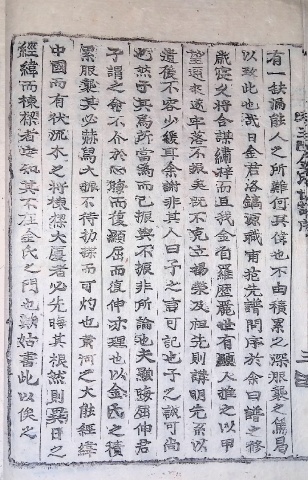 有一鈌漏能人之所難何其偉也不由積累之深服襲之篤曷
以致此也哉日金君洛鎬源職甫苑先譜問序於余曰譜之修
歲窓又將合謀繡梓而且我金自羅歷麗世有顯人雖之以甲
望邇來遂牢落不振矣旣不克立揚榮及祖先則講明先系以
遺後不容少緩耳余謝非其人曰子之言可記也子之誠可尚
也然子其爲所當爲而已振與不振非所論也夫顯晦屈伸君
子謂之命不介於心晦而復顯屈而復伸亦理也以金氏之積
累服襲其必赫舃大振不待劫蔡而可灼也黃河之大能經緯
中國而有伏流木之將棟樑大廈者必先晦其根然則異日之
經緯而棟樑者安知其不在金氏之門也歟姑書此以俟之